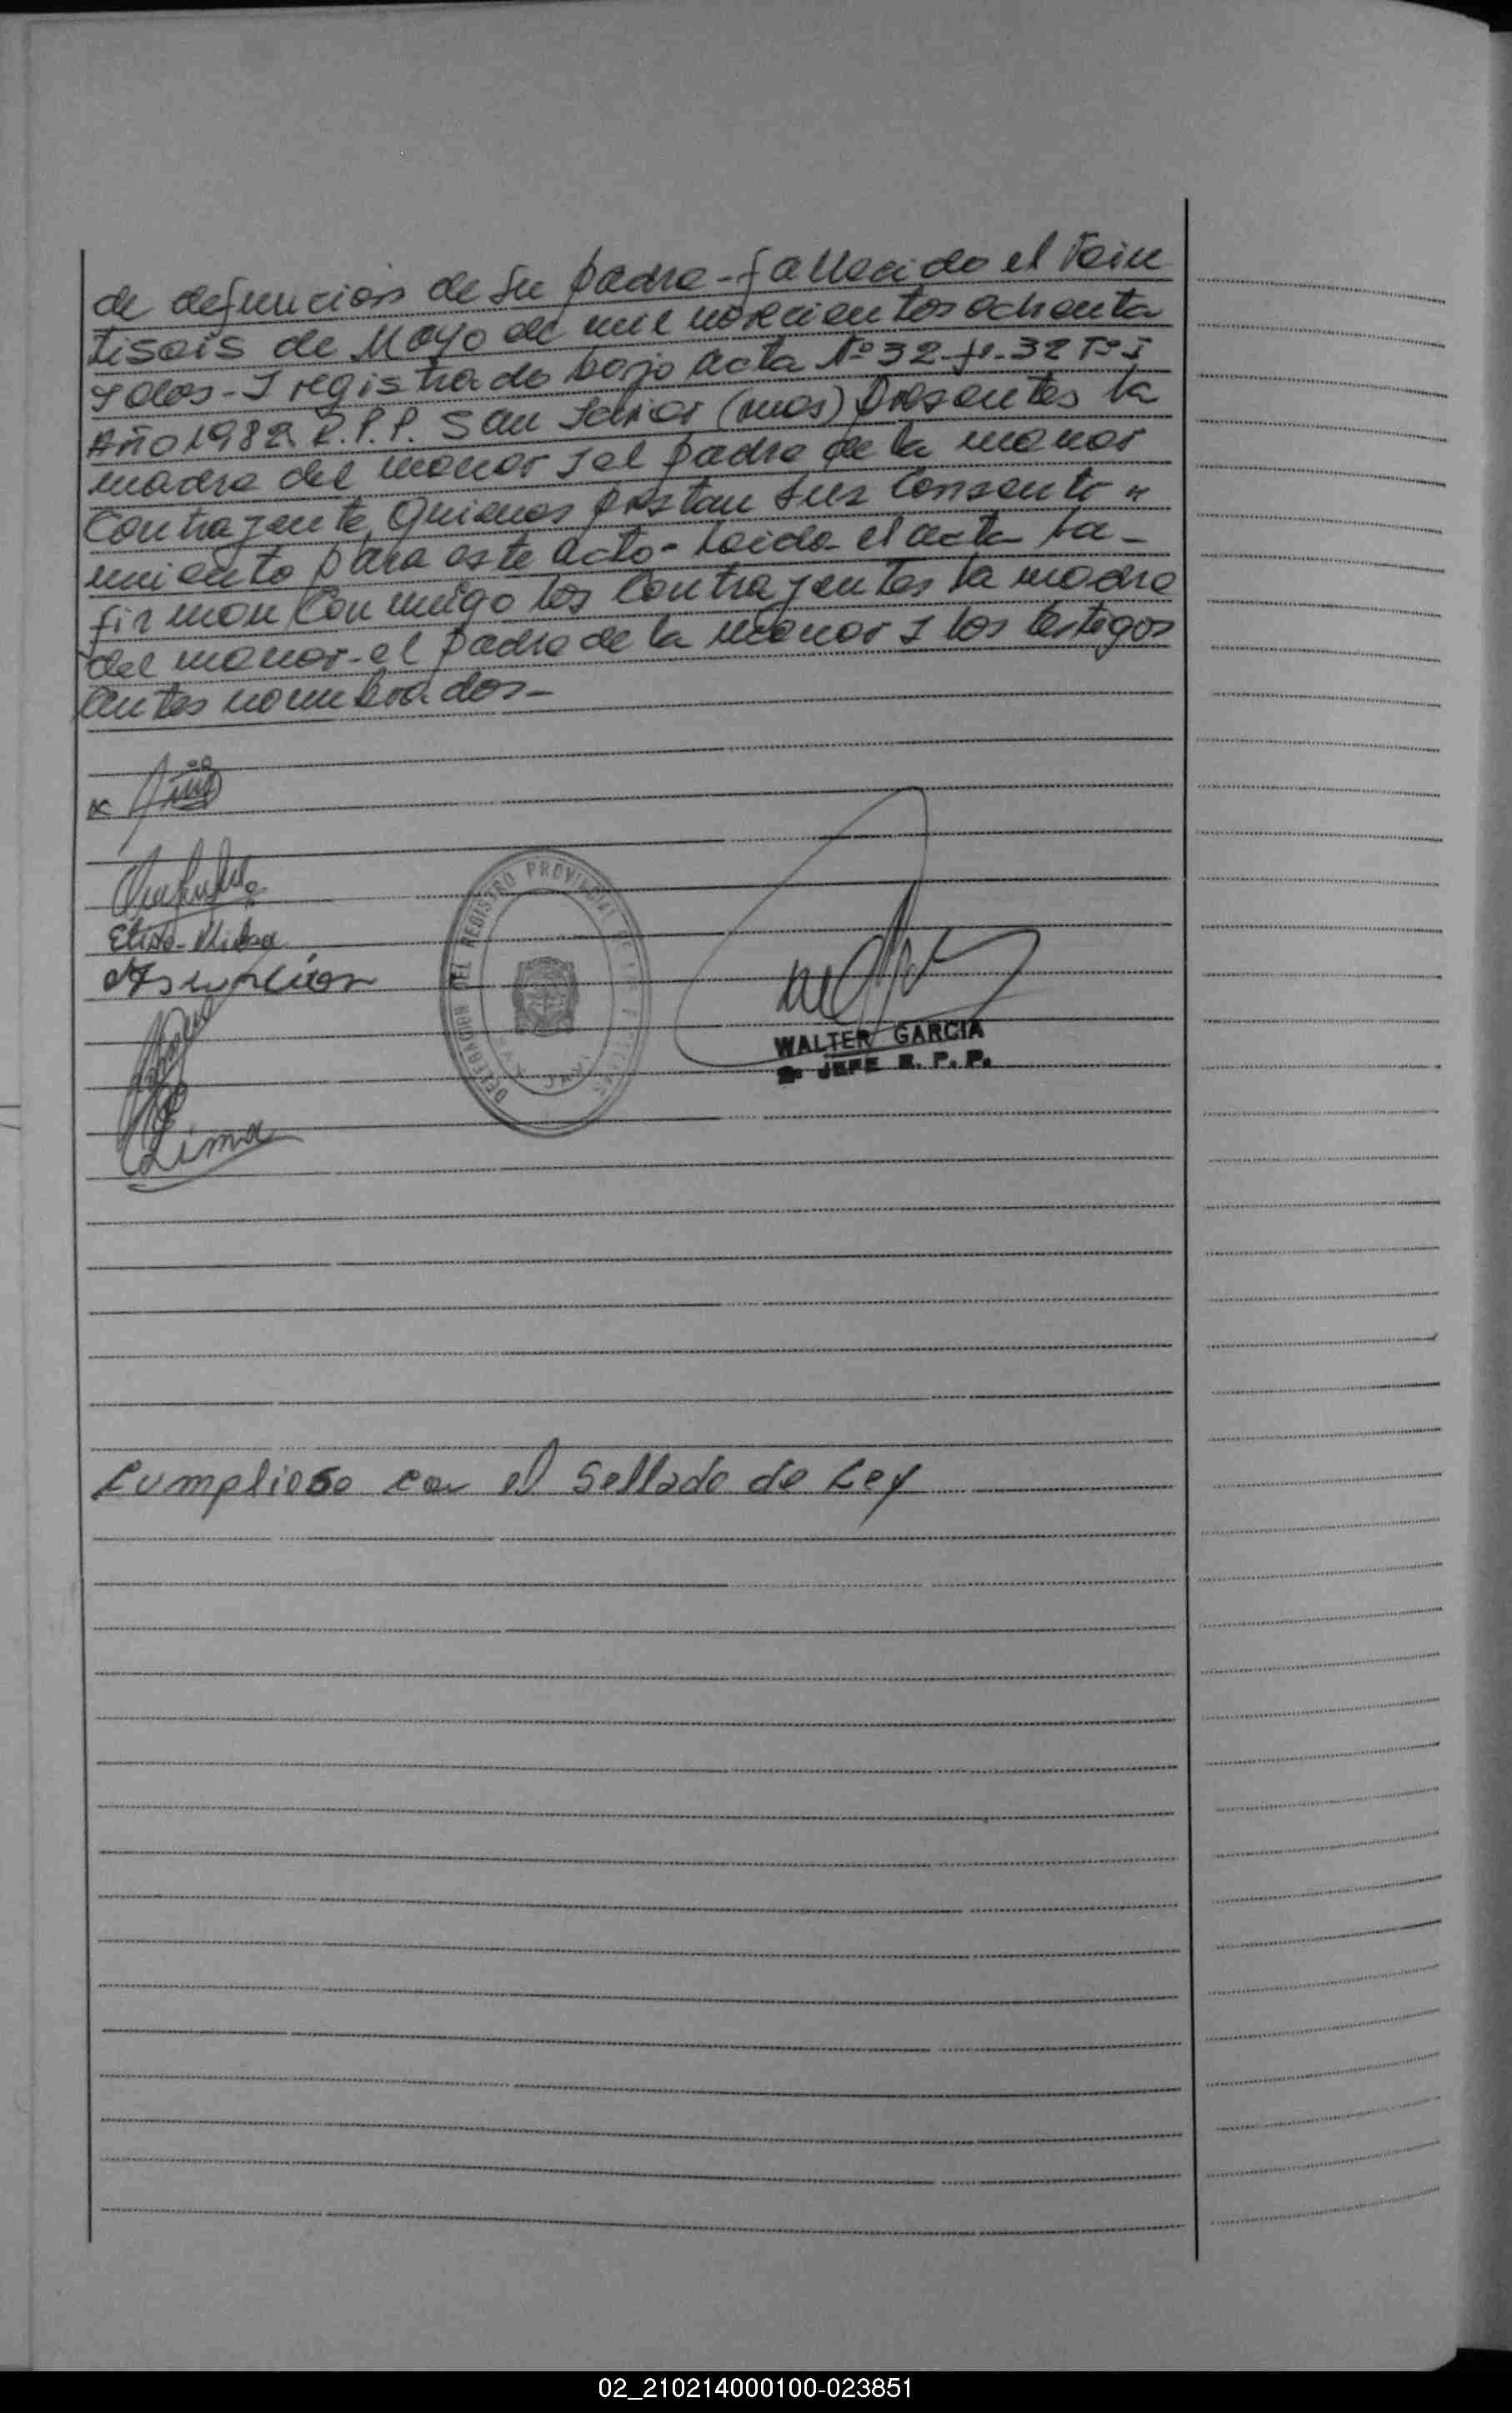 de defuncion de su padre - fallecido el Vein
tiseis de Mayo de mil novecientos ochenta
y dos - y registrado bajo acta Nº 32 - fº - 32 Tº I
Año 1982 R.P.P. San Javier (mnes) Presentes la
madre del menor y el padre de la menor
Contrayente, Quienes prestan sus Consenti "
miento para este acto - Leida el acta la -
firman Conmigo los Contrayentes la madre
del menor - el padre de la menor y los testigos
antes nombrados -
DELEGACION DEL REGISTRO PROVINCIAL DE LAS PERSONAS
SAN JAVIER
Asunción
WALTER GARCIA
JEFE R. P. P.
Lima
Cumpliose con el Sellado de Ley
02_210214000100-023851